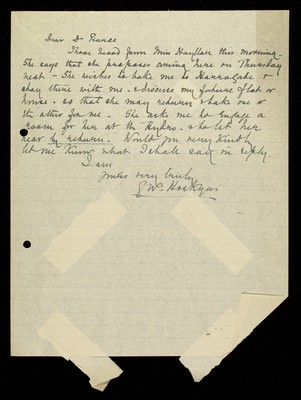 Dear Dr Pearce
I have heard from Miss Hayllar this morning.
She says that she proposes coming here on Thursday
next - She wishes to take me to Harrogate &
stay there with me - & discuss my future flat or
house - so that she may return & take one or
the other for me. She asks me to engage a
room for her at the Hydro - & to let her
hear by return. Would you very kindly
let me know what I shall say in reply.
I am
Yours very truly